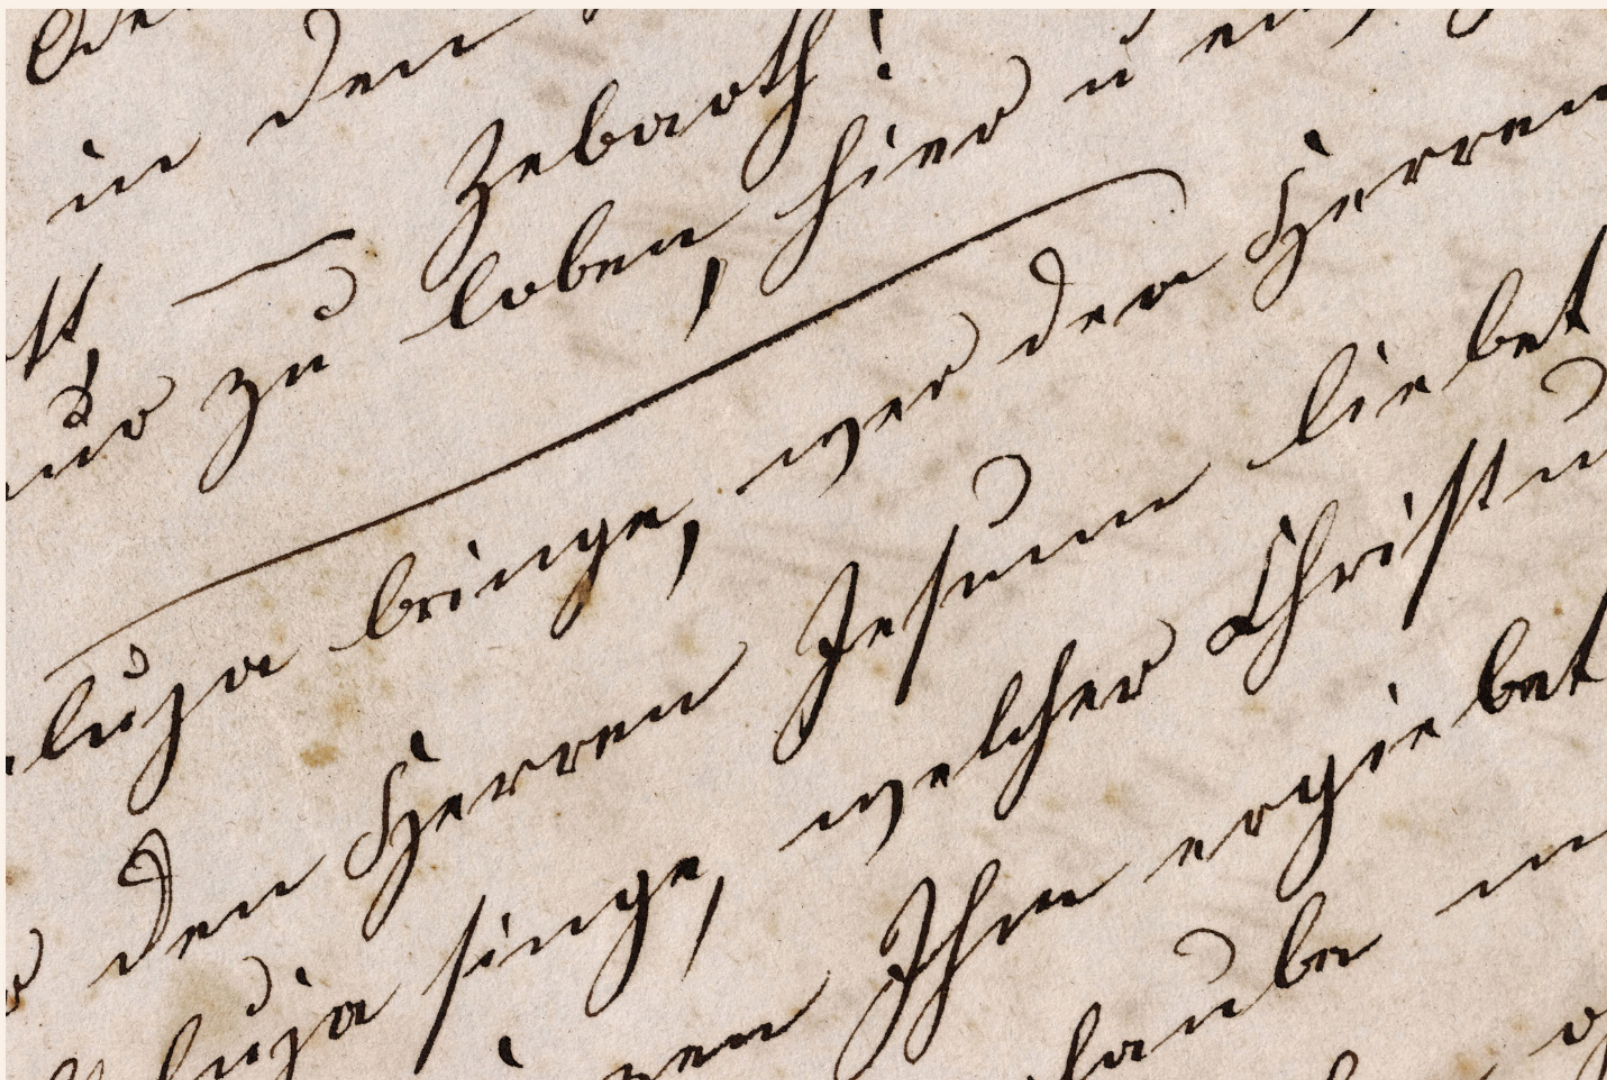 in den
Zebaoth!
nur zu loben, hier u
luja bringe, wer den Herren
den Herren Jesum liebet
luja singe, welcher Christu
zen Ihm ergiebet